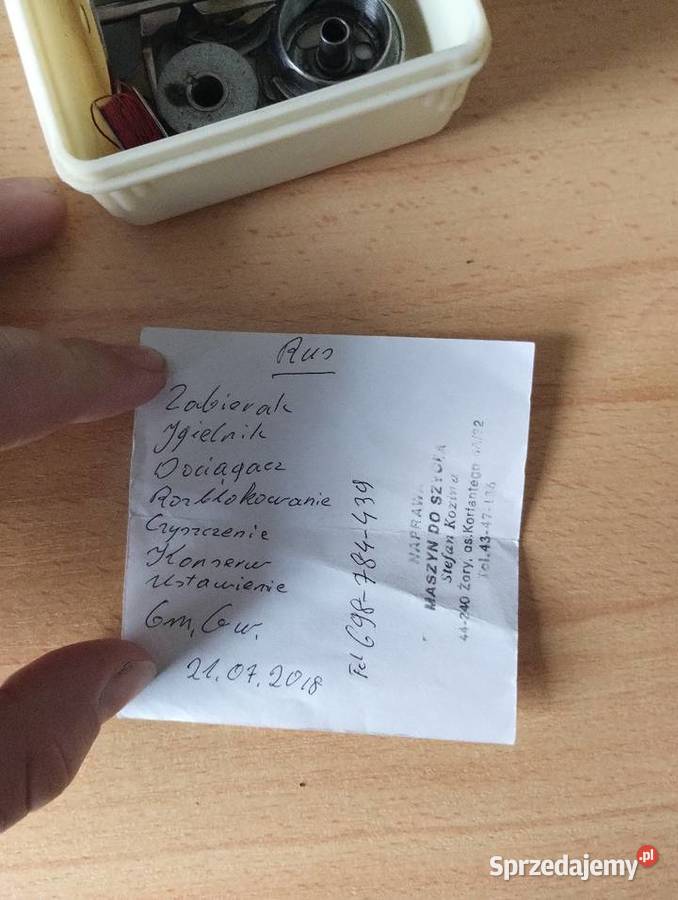 Rus
Zabierak
Igielnik
Dociągacz
Rozblokowanie
Czyszczenie
Konserw
Ustawienie
6m, Gw.
21.07.2018
Tel 698-784-439
NAPRAWA
MASZYN DO SZYCIA
Stefan Kozina
44-240 Żory, os. Korfantego
Tel. 43-47-136
Sprzedajemy.pl